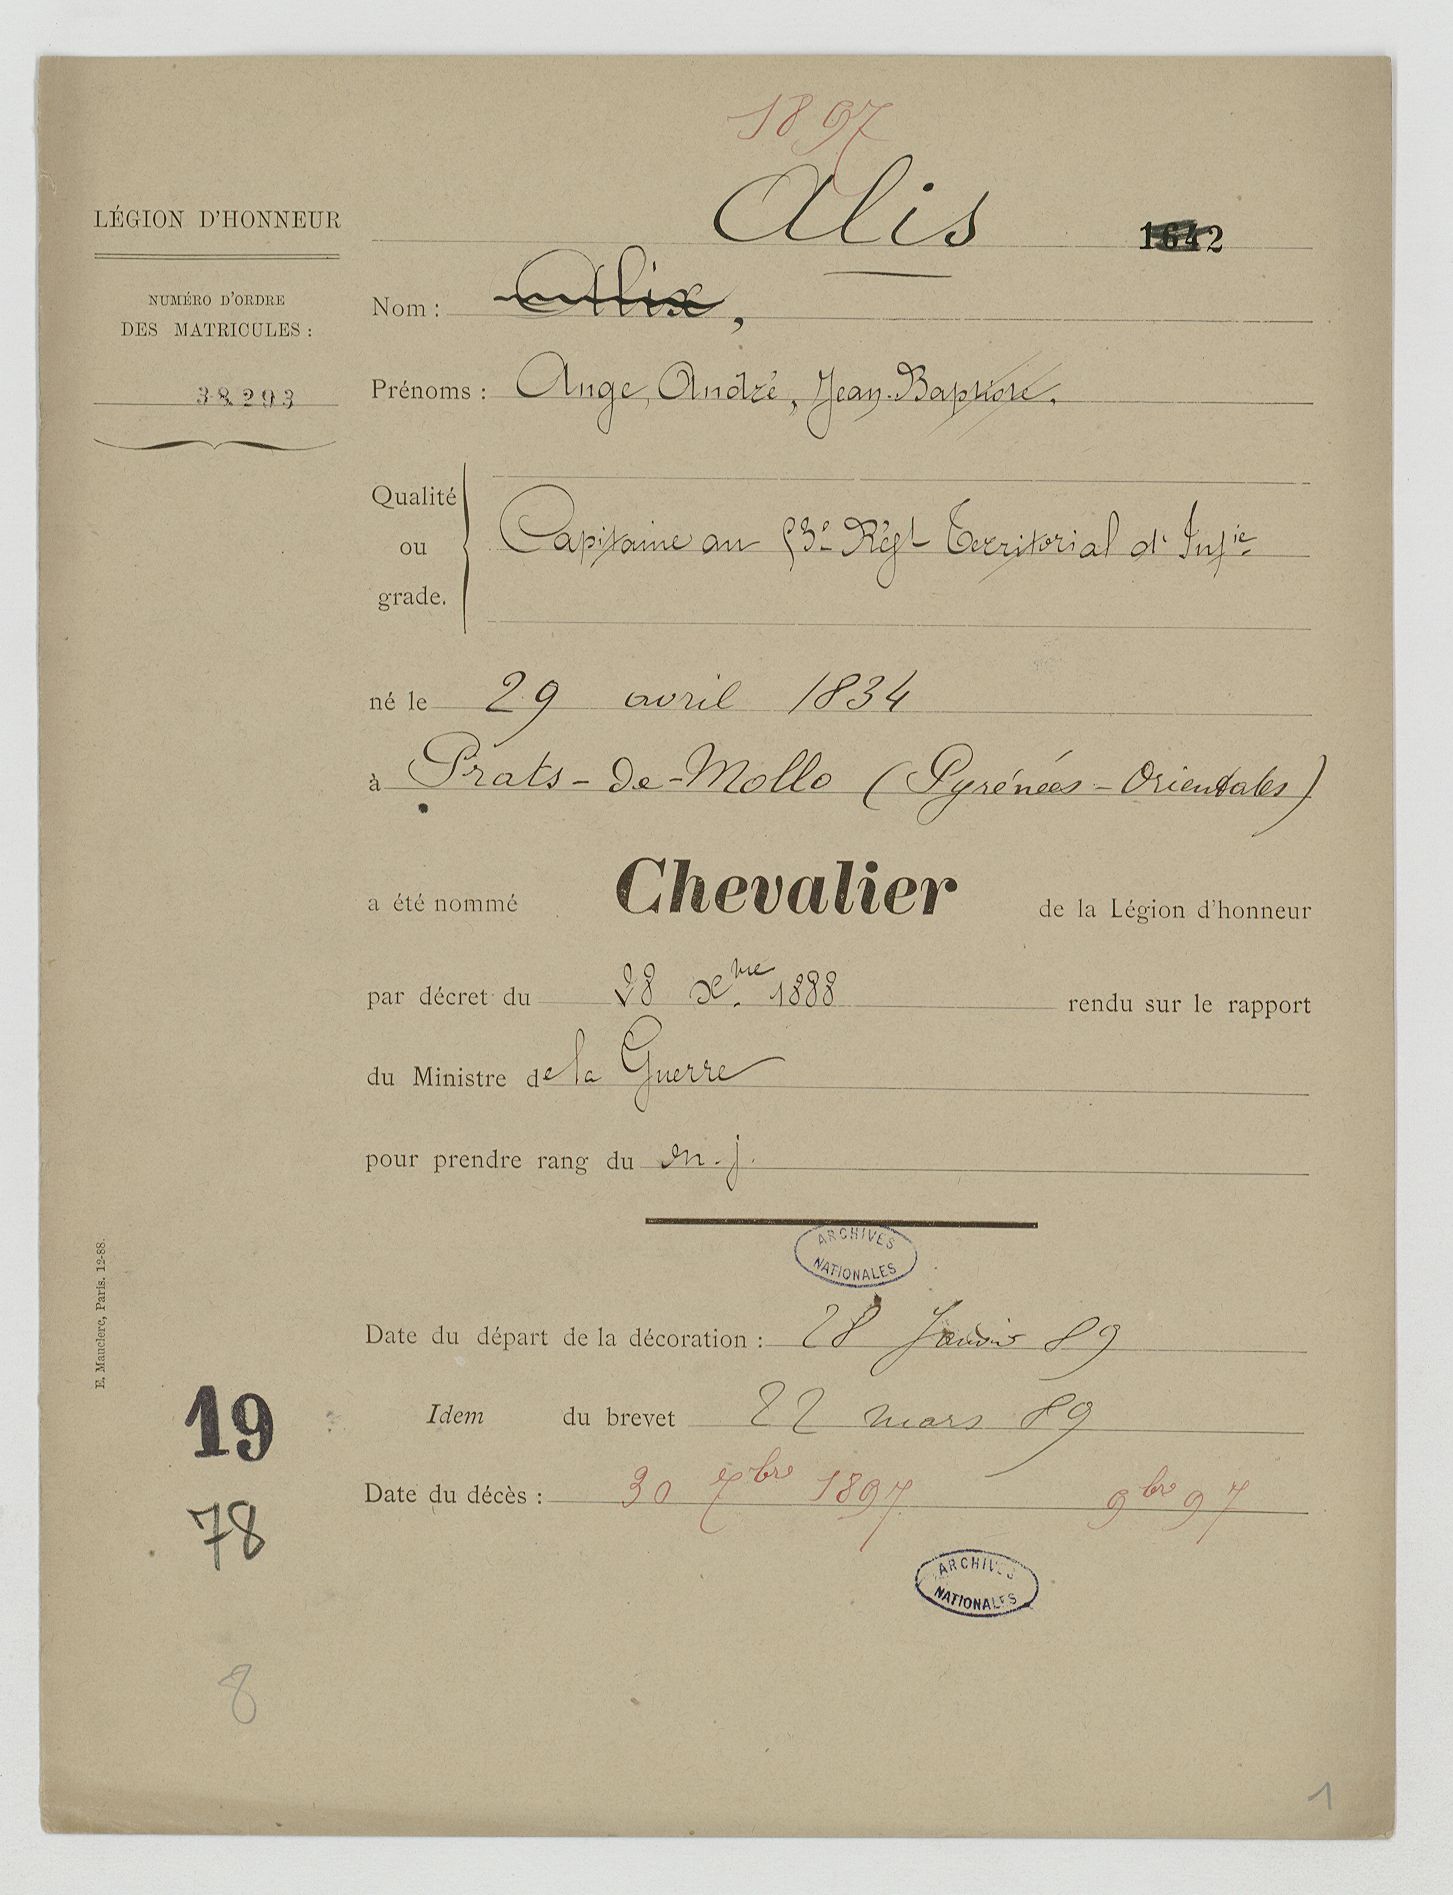 1897
Alis
1642
LÉGION D'HONNEUR
NUMÉRO D'ORDRE
DES MATRICULES :
38293
Nom : Alix,
Prénoms : Ange, André, Jean-Baptiste.
Qualité
ou
grade.
Capitaine au 53e Régt Territorial d'Infie
né le 29 avril 1834
à Prats-de-Mollo (Pyrénées-Orientales)
a été nommé Chevalier de la Légion d'honneur
par décret du 28 Xbre 1888 rendu sur le rapport
du Ministre de la Guerre
pour prendre rang du m. j.
ARCHIVES
NATIONALES
Date du départ de la décoration : 28 Janvier 89
Idem du brevet 22 mars 89
Date du décès : 30 7bre 1897 9bre 97
ARCHIVES
NATIONALES
E. Mauclerc, Paris. 12-88.
19
78
8
1